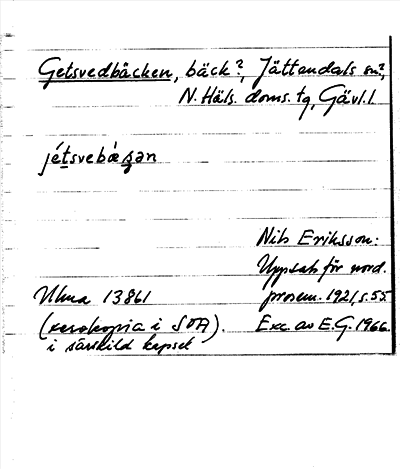 Getsvedbäcken, bäck?, Jättendals sn?,
N. Häls. doms. tg, Gävl. l.
jétsvebǽʒən
Nils Eriksson:
Uppsats för nord.
Ulma 13861 prosem. 1921, s. 55.
(xerokopia i SOA). Exc. av E.G. 1966.
i särskild kapsel